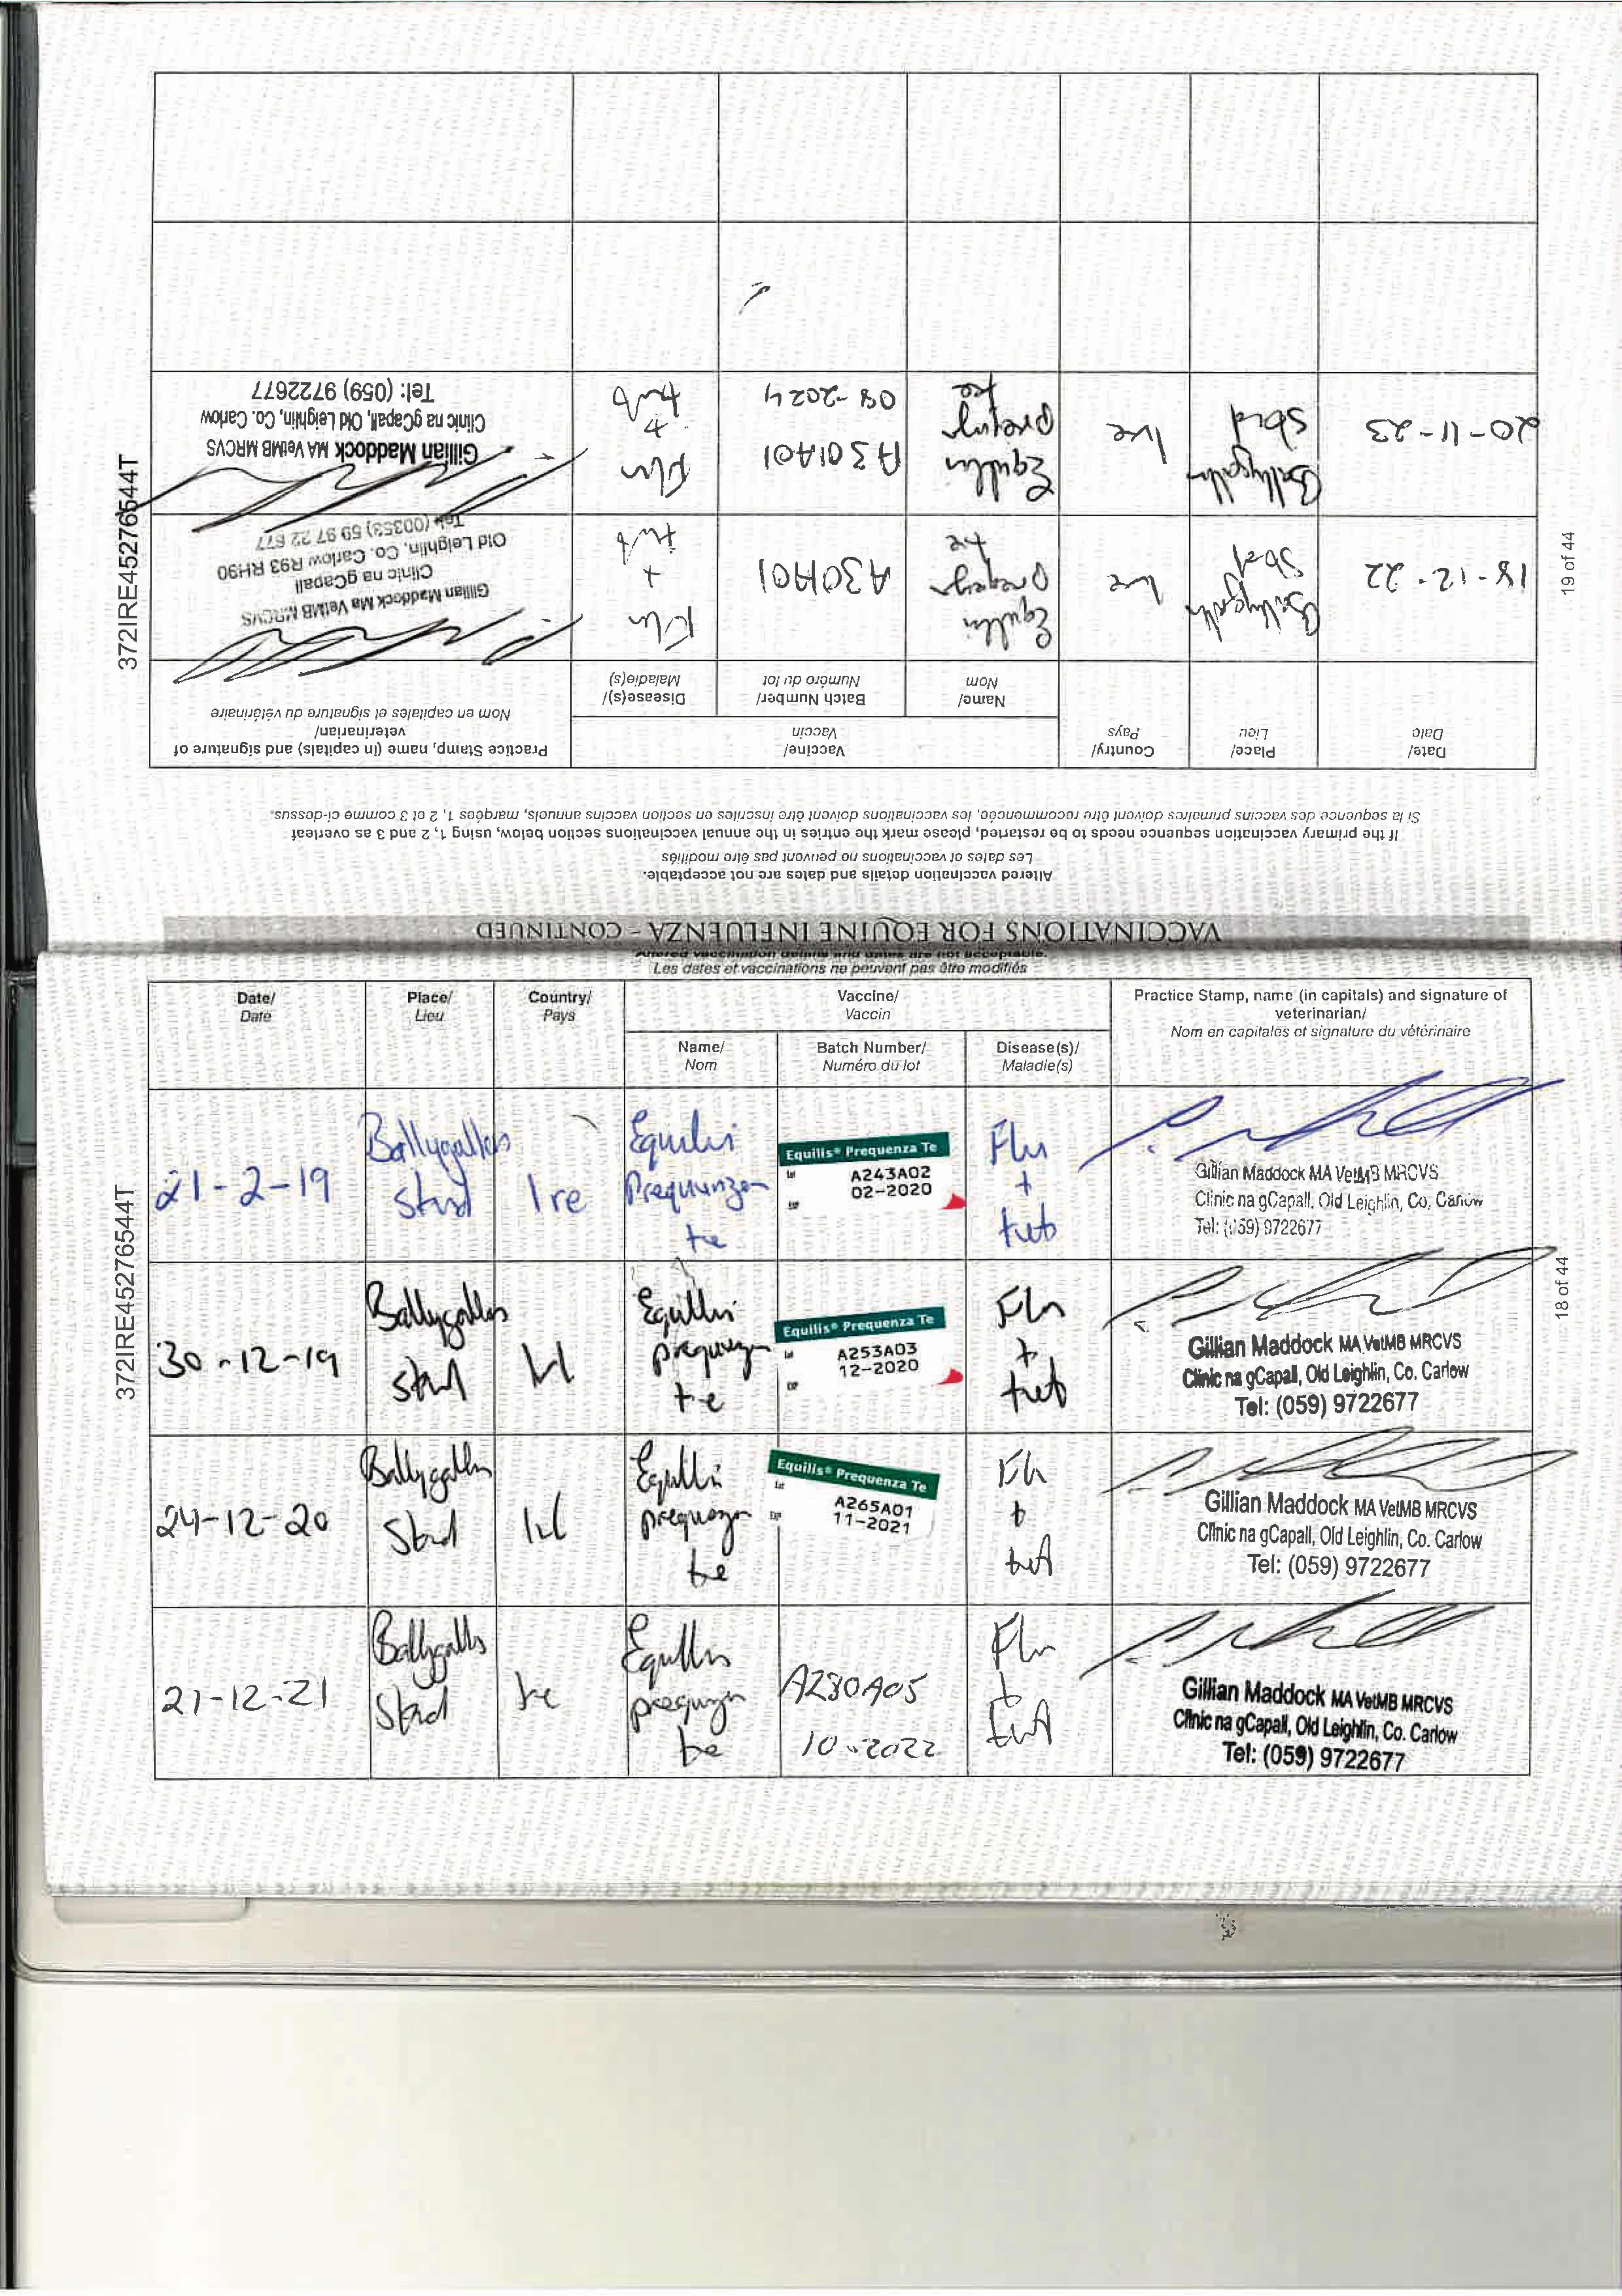 VACCINATIONS FOR EQUINE INFLUENZA – CONTINUED
Altered vaccination details and dates are not acceptable.
Les dates et vaccinations ne peuvent pas être modifiés
If the primary vaccination sequence needs to be restarted, please mark the entries in the annual vaccinations section below, using 1, 2 and 3 as overleaf
Si la sequence des vaccins primaires doivent être recommencée, les vaccinations doivent être inscrites en section vaccins annuels, marquées 1, 2 et 3 comme ci-dessus.
Date/
Date
Place/
Lieu
Country/
Pays
Vaccine/
Vaccin
Practice Stamp, name (in capitals) and signature of
veterinarian/
Nom en capitales et signature du vétérinaire
Name/
Nom
Batch Number/
Numéro du lot
Disease(s)/
Maladie(s)
18-12-22
Stud
Ire
A301A01
Flu
+
Gillian Maddock Ma VetMB MRCVS
Clinic na gCapall
Old Leighlin, Co. Carlow R93 RH90
Tel: (00353) 59 97 22 677
20-11-23
Stud
Ire
A301A01
08-2024
Flu
+
Gillian Maddock MA VetMB MRCVS
Clinic na gCapall, Old Leighlin, Co. Carlow
Tel: (059) 9722677
372IRE45276544T
19 of 44
Altered vaccination details and dates are not acceptable.
Les dates et vaccinations ne peuvent pas être modifiés
Date/
Date
Place/
Lieu
Country/
Pays
Vaccine/
Vaccin
Practice Stamp, name (in capitals) and signature of
veterinarian/
Nom en capitales et signature du vétérinaire
Name/
Nom
Batch Number/
Numéro du lot
Disease(s)/
Maladie(s)
21-2-19
Stud
Ire
te
Equilis® Prequenza Te
Lot
A243A02
02-2020
EXP
Flu
+
tet
Gillian Maddock MA VetMB MRCVS
Clinic na gCapall, Old Leighlin, Co. Carlow
Tel: (059) 9722677
30-12-19
Stud
te
Equilis® Prequenza Te
Lot
A253A03
12-2020
EXP
Flu
+
tet
Gillian Maddock MA VetMB MRCVS
Clinic na gCapall, Old Leighlin, Co. Carlow
Tel: (059) 9722677
24-12-20
Stud
te
Equilis® Prequenza Te
Lot
A265A01
11-2021
EXP
Flu
+
tet
Gillian Maddock MA VetMB MRCVS
Clinic na gCapall, Old Leighlin, Co. Carlow
Tel: (059) 9722677
21-12-21
Stud
Ire
te
A280A05
10-2022
Flu
+
tet
Gillian Maddock MA VetMB MRCVS
Clinic na gCapall, Old Leighlin, Co. Carlow
Tel: (059) 9722677
372IRE45276544T
18 of 44